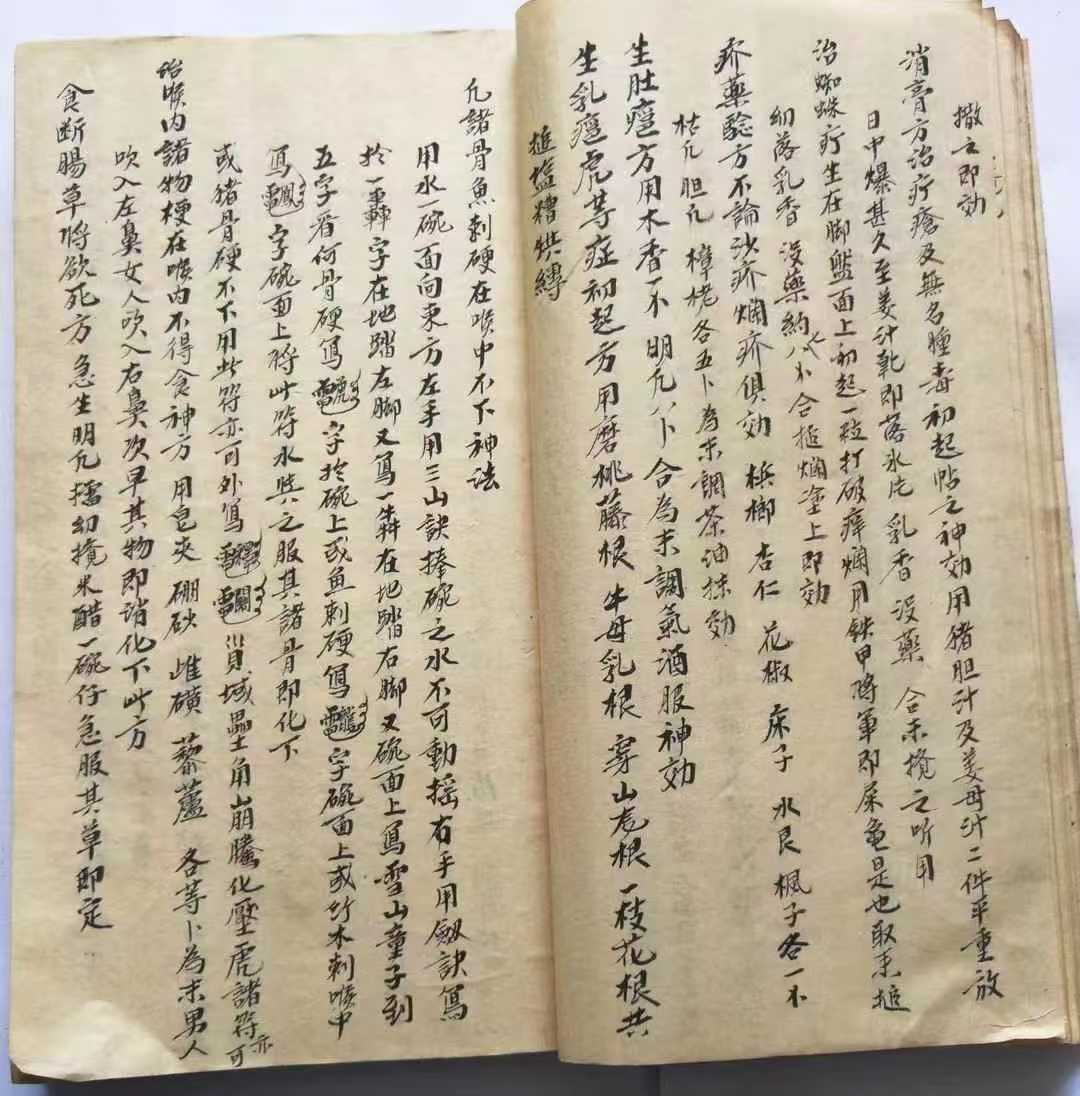 撒之即効
消膏方治疔瘡及無名腫毒初起帖之神効用猪胆汁及姜母汁二件平重放
日中爆甚久至姜汁乾即落氷片乳香没藥合末攪之听用
治蜘蛛疔生在脚盤面上初起一粒打破痒爛用鉄甲将軍即屎龟是也取末搥
幼落乳香没藥約八卜合搥爛塗上即効
疥藥騐方不論沙疥爛疥俱効梹榔杏仁花椒床子水艮楓子各一不
枯凢胆凢樟栳各五卜為末調茶油抹効
生肚癰方用木香一不明凢八卜合為末調氣酒服神効
生乳癰虎等症初起方用磨桃藤根牛母乳根穿山尨根一枝花根共
搥塩糟烘縳
凢諸骨魚刺硬在喉中不下神法
用水一碗面向東方左手用三山訣捧碗之水不可動摇右手用劔訣寫
扵一轟字在地踏左脚又寫一犇在地踏右脚又碗面上寫雪山童子到
五字看何骨硬寫字扵碗上或魚刺硬寫字碗面上或竹木刺喉中
寫字碗面上将此符水與之服其諸骨即化下
或猪骨硬不下用此符亦可外寫城壘角山崩騰化壓虎諸符亦可
治喉内諸物梗在喉内不得食神方用皂夾硼砂雌磺藜蘆各等卜為末男人
吹入左鼻女人吹入右鼻次早其物即消化下此方
食断腸草将欲死方急生明凢擂幼攪米醋一碗仔急服其草即定